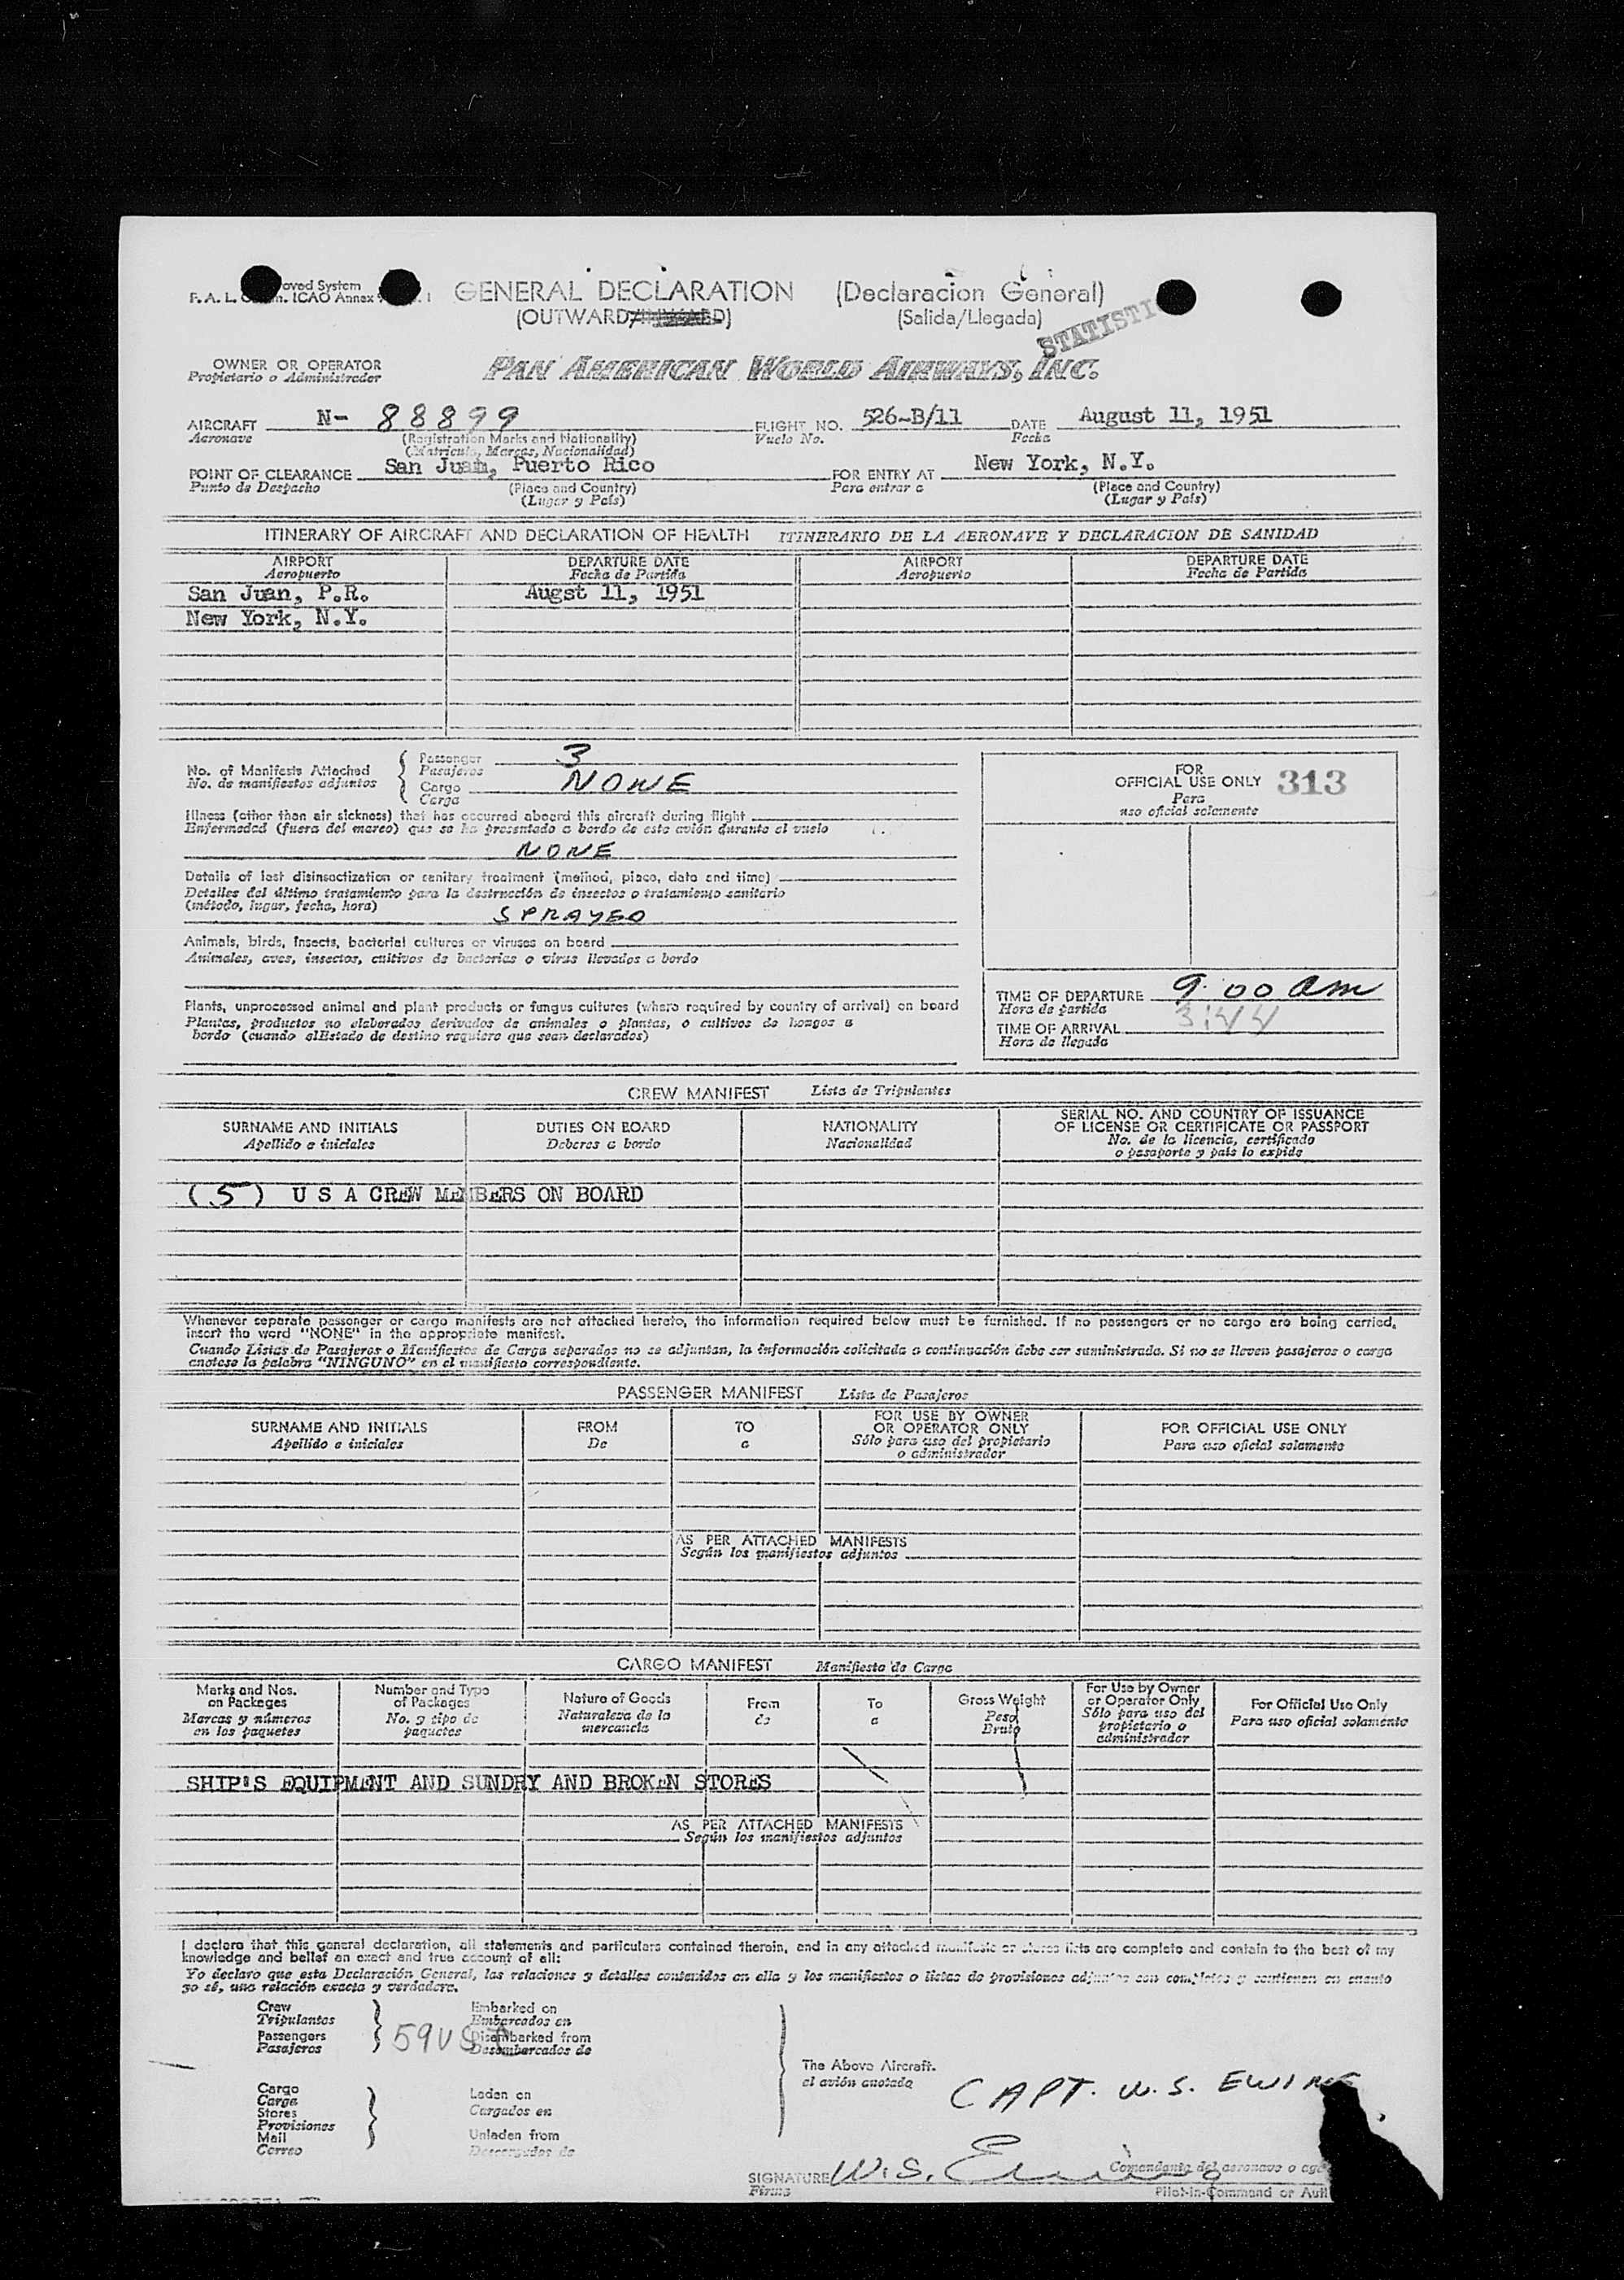 oved System
F. A. L. ICAO Annex
GENERAL DECLARATION (Declaracion General)
(OUTWARD/INWARD) (Salida/Llegada)
STATISTI
OWNER OR OPERATOR
Propietario o Administrador
PAN AMERICAN WORLD AIRWAYS, INC.
AIRCRAFT N- 88899 FLIGHT NO. 526-B/11 DATE August 11, 1951
Aeronave (Registration Marks and Nationality) Vuelo No. Fecha
(Matricula, Marcas, Nacionalidad)
POINT OF CLEARANCE San Juan, Puerto Rico FOR ENTRY AT New York, N.Y.
Punto de Despacho (Place and Country) Para entrar a (Place and Country)
(Lugar y País) (Lugar y País)
ITINERARY OF AIRCRAFT AND DECLARATION OF HEALTH ITINERARIO DE LA AERONAVE Y DECLARACION DE SANIDAD
AIRPORT DEPARTURE DATE AIRPORT DEPARTURE DATE
Aeropuerto Fecha de Partida Aeropuerto Fecha de Partida
San Juan, P.R. Augst 11, 1951
New York, N.Y.
No. of Manifests Attached
No. de manifiestos adjuntos
Passenger 3
Pasajeros
Cargo NONE
Carga
Illness (other than air sickness) that has occurred aboard this aircraft during flight
Enfermedad (fuera del mareo) que se ha presentado a bordo de este avión durante el vuelo
NONE
Details of last disinsectization or sanitary treatment (method, place, date and time)
Detalles del último tratamiento para la destrucción de insectos o tratamiento sanitario
(método, lugar, fecha, hora)
SPRAYED
Animals, birds, insects, bacterial cultures or viruses on board
Animales, aves, insectos, cultivos de bacterias o virus llevados a bordo
Plants, unprocessed animal and plant products or fungus cultures (where required by country of arrival) on board
Plantas, productos no elaborados derivados de animales o plantas, o cultivos de hongos a
bordo (cuando elEstado de destino requiere que sean declarados)
FOR
OFFICIAL USE ONLY 313
Para
uso oficial solamente
TIME OF DEPARTURE 9:00 am
Hora de partida
TIME OF ARRIVAL 3:44
Hora de llegada
CREW MANIFEST Lista de Tripulantes
SURNAME AND INITIALS DUTIES ON BOARD NATIONALITY SERIAL NO. AND COUNTRY OF ISSUANCE
OF LICENSE OR CERTIFICATE OR PASSPORT
Apellido e iniciales Deberes a bordo Nacionalidad No. de la licencia, certificado
o pasaporte y país lo expide
(5) U S A CREW MEMBERS ON BOARD
Whenever separate passenger or cargo manifests are not attached hereto, the information required below must be furnished. If no passengers or no cargo are being carried,
insert the word "NONE" in the appropriate manifest.
Cuando Listas de Pasajeros o Manifiestos de Carga separados no se adjuntan, la información solicitada a continuación debe ser suministrada. Si no se lleven pasajeros o carga
anotese la palabra "NINGUNO" en el manifiesto correspondiente.
PASSENGER MANIFEST Lista de Pasajeros
SURNAME AND INITIALS FROM TO FOR USE BY OWNER
OR OPERATOR ONLY FOR OFFICIAL USE ONLY
Apellido e iniciales De a Sólo para uso del propietario
o administrador Para uso oficial solamente
AS PER ATTACHED MANIFESTS
Según los manifiestos adjuntos
CARGO MANIFEST Manifiesto de Carga
Marks and Nos.
on Packages
Marcas y números
en los paquetes
Number and Type
of Packages
No. y tipo de
paquetes
Nature of Goods
Naturaleza de la
mercancía
From
de
To
a
Gross Weight
Peso
Bruto
For Use by Owner
or Operator Only
Sólo para uso del
propietario o
administrador
For Official Use Only
Para uso oficial solamente
SHIP'S EQUIPMENT AND SUNDRY AND BROKEN STORES
AS PER ATTACHED MANIFESTS
Según los manifiestos adjuntos
I declare that this general declaration, all statements and particulars contained therein, and in any attached manifests or stores lists are complete and contain to the best of my
knowledge and belief an exact and true account of all:
Yo declaro que esta Declaración General, las relaciones y detalles contenidos en ella y los manifiestos o listas de provisiones adjuntos son completos y contienen en cuanto
yo sé, una relación exacta y verdadera.
Crew
Tripulantes
Passengers
Pasajeros
59 USA
Embarked on
Embarcados en
Disembarked from
Desembarcados de
Cargo
Carga
Stores
Provisiones
Mail
Correo
Laden on
Cargados en
Unladen from
Descargados de
The Above Aircraft.
el avión anotado
CAPT. W.S. EWING
SIGNATURE W.S. Ewing
Firma
Comandante del aeronave o age
Pilot-in-Command or Auth